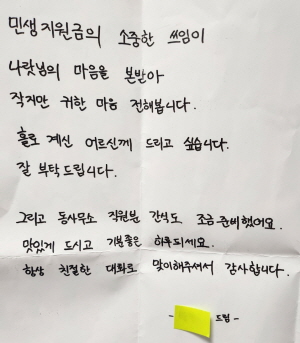 민생지원금의 소중한 쓰임이
나랏님의 마음을 본받아
작지만 귀한 마음 전해봅니다.
홀로 계신 어르신께 드리고 싶습니다.
잘 부탁드립니다.
그리고 동사무소 직원분 간식도 조금 준비했어요.
맛있게 드시고 기분좋은 하루되세요.
항상 친절한 대화로 맞이해주셔서 감사합니다.
- 드림 -